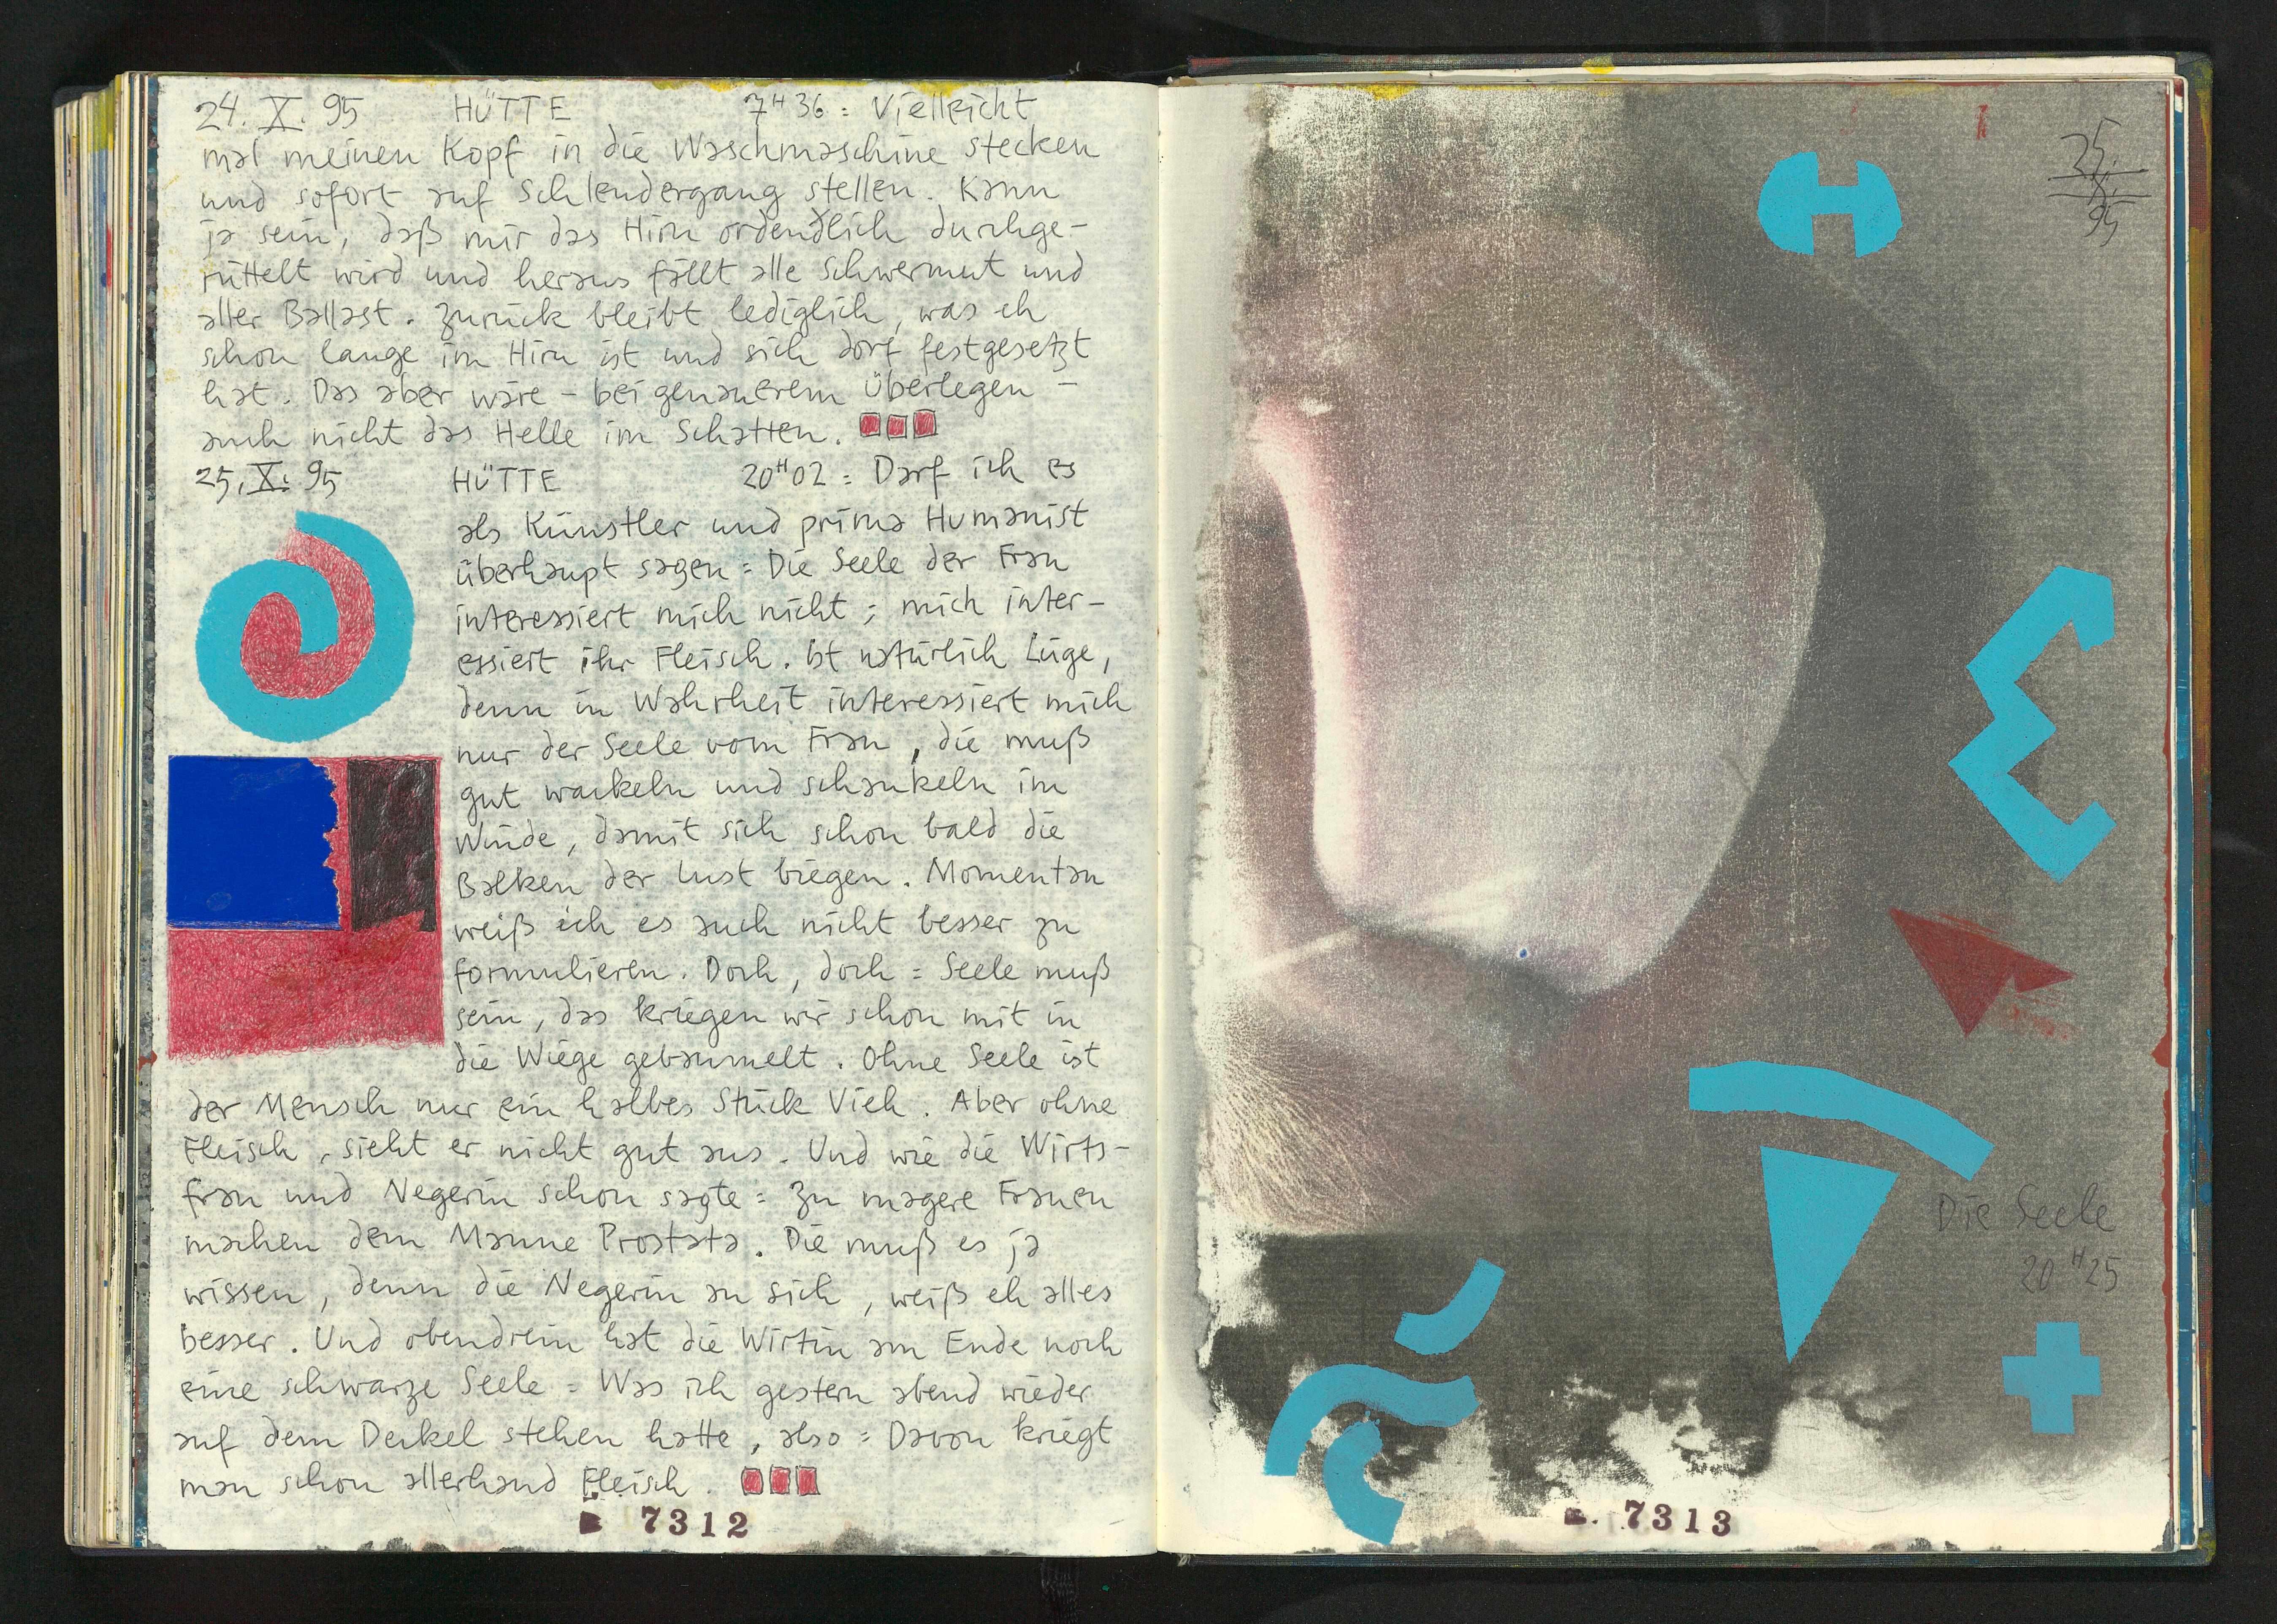 24. X. 95 HÜTTE 7H36 = Vielleicht
mal meinen Kopf in die Waschmaschine stecken
und sofort auf Schleudergang stellen. Kann
ja sein, daß mir das Hirn ordendlich durchge-
rüttelt wird und heraus fällt alle Schwermut und
aller Ballast. Zurück bleibt lediglich, was eh
schon lange im Hirn ist und sich dort festgesetzt
hat. Das aber wäre – bei genauerem Überlegen –
auch nicht das Helle im Schatten.
25. X. 95 HÜTTE 20H02 = Darf ich es
als Künstler und prima Humanist
überhaupt sagen = Die Seele der Frau
interessiert mich nicht; mich inter-
essiert ihr Fleisch. Ist natürlich Lüge,
denn in Wahrheit interessiert mich
nur der Seele vom Frau, die muß
gut wackeln und schaukeln im
Winde, damit sich schon bald die
Balken der Lust biegen. Momentan
weiß ich es auch nicht besser zu
formulieren. Doch, doch = Seele muß
sein, das kriegen wir schon mit in
die Wiege gebaumelt. Ohne Seele ist
der Mensch nur ein halbes Stück Vieh. Aber ohne
Fleisch, sieht er nicht gut aus. Und wie die Wirts-
frau und Negerin schon sagte = Zu magere Frauen
machen dem Manne Prostata. Die muß es ja
wissen, denn die Negerin an sich, weiß eh alles
besser. Und obendrein hat die Wirtin am Ende noch
eine schwarze Seele = Was ich gestern abend wieder
auf dem Deckel stehen hatte, also = Davon kriegt
man schon allerhand Fleisch.
7312
25.
X.
95
Die Seele
20H25
7313